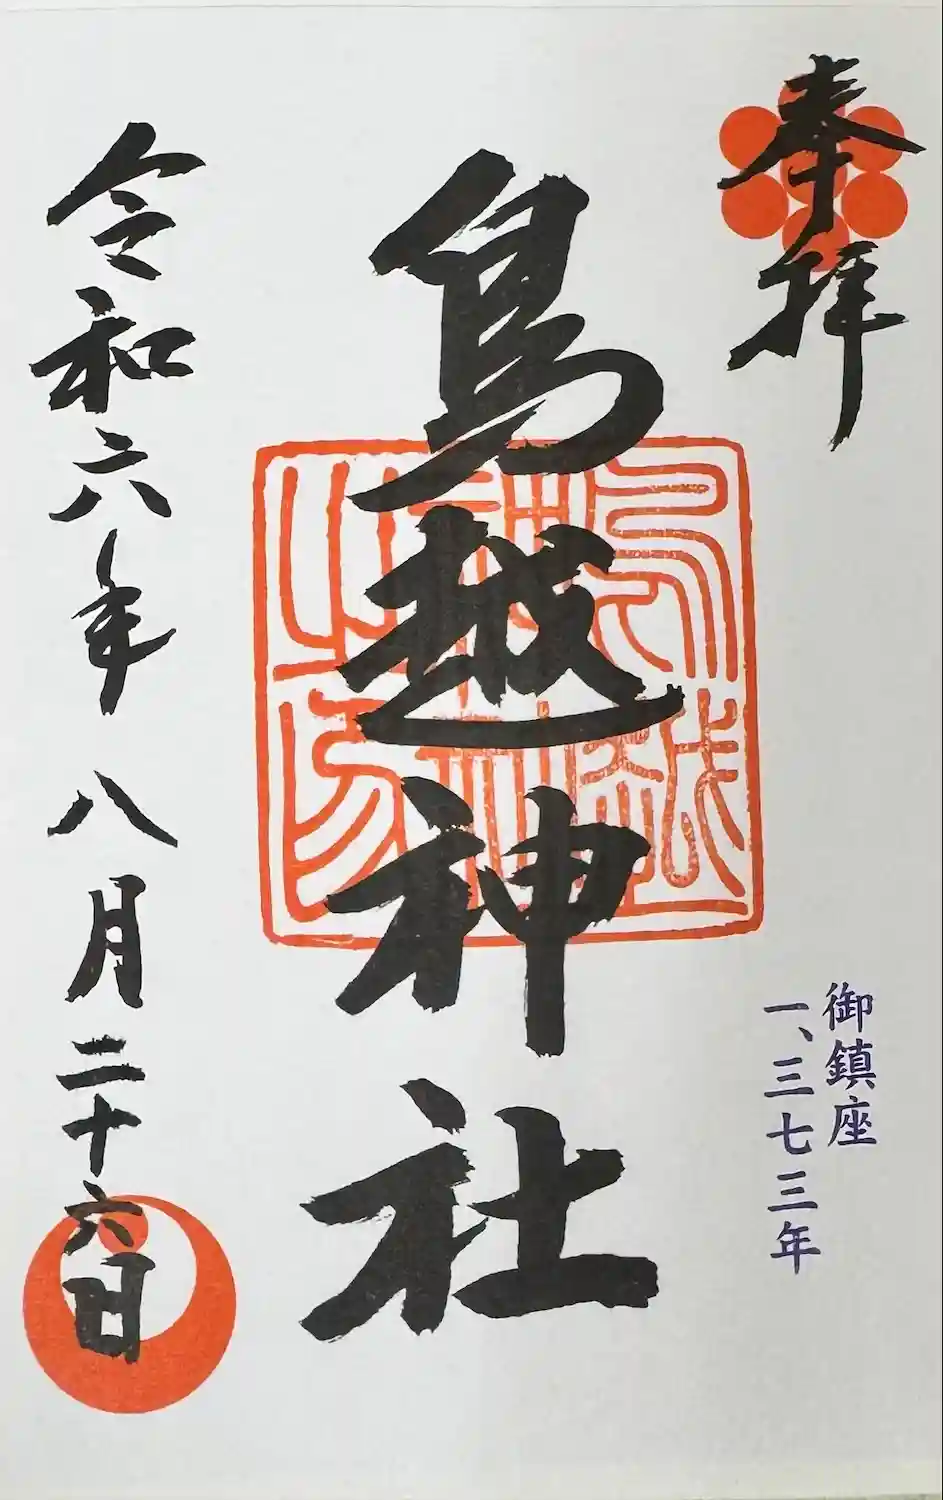 奉拝
御鎮座
一、三七三年
鳥越神社
鳥越神社之印
令和六年 八月二十六日